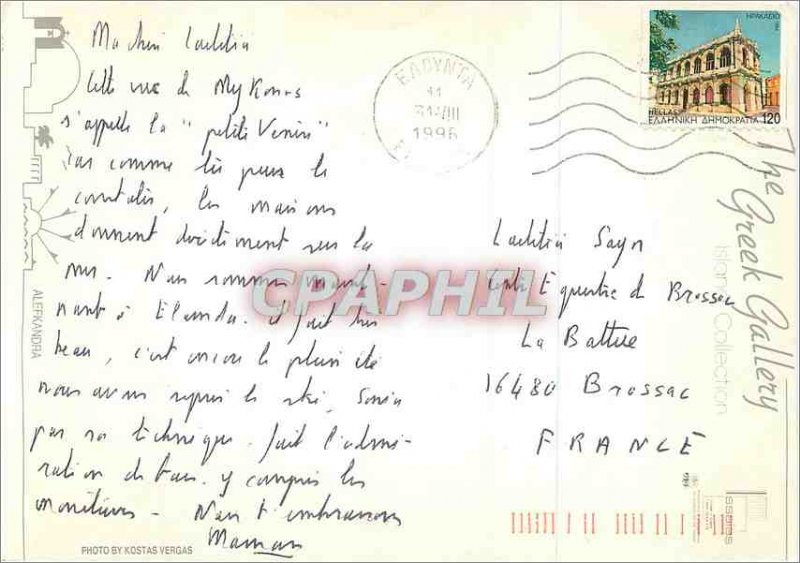 Ma chérie Laetitia
Cette vue de Mykonos
s'appelle la "petite Venise"
car comme tu peux le
constater, les maisons
donnent directement sur la
mer. Nous sommes mainte-
nant à Elounda. Il fait très
beau, c'est encore le plein été
nous avons repris le ski, Sonia
par sa technique fait l'admi-
ration de tous y compris les
moniteurs - Nous t'embrassons
Maman
PHOTO BY KOSTAS VERGAS
ALEFXANDRA
ΕΛΟΥΝΤΑ
11
31 VIII
1996
ΗΡΑΚΛΕΙΟ
HELLAS
ΕΛΛΗΝΙΚΗ ΔΗΜΟΚΡΑΤΙΑ 120
The Greek Gallery
Islands Collection
Laetitia
Centre Equestre de Brossac
La Battue
16480 Brossac
FRANCE
CPAPHIL